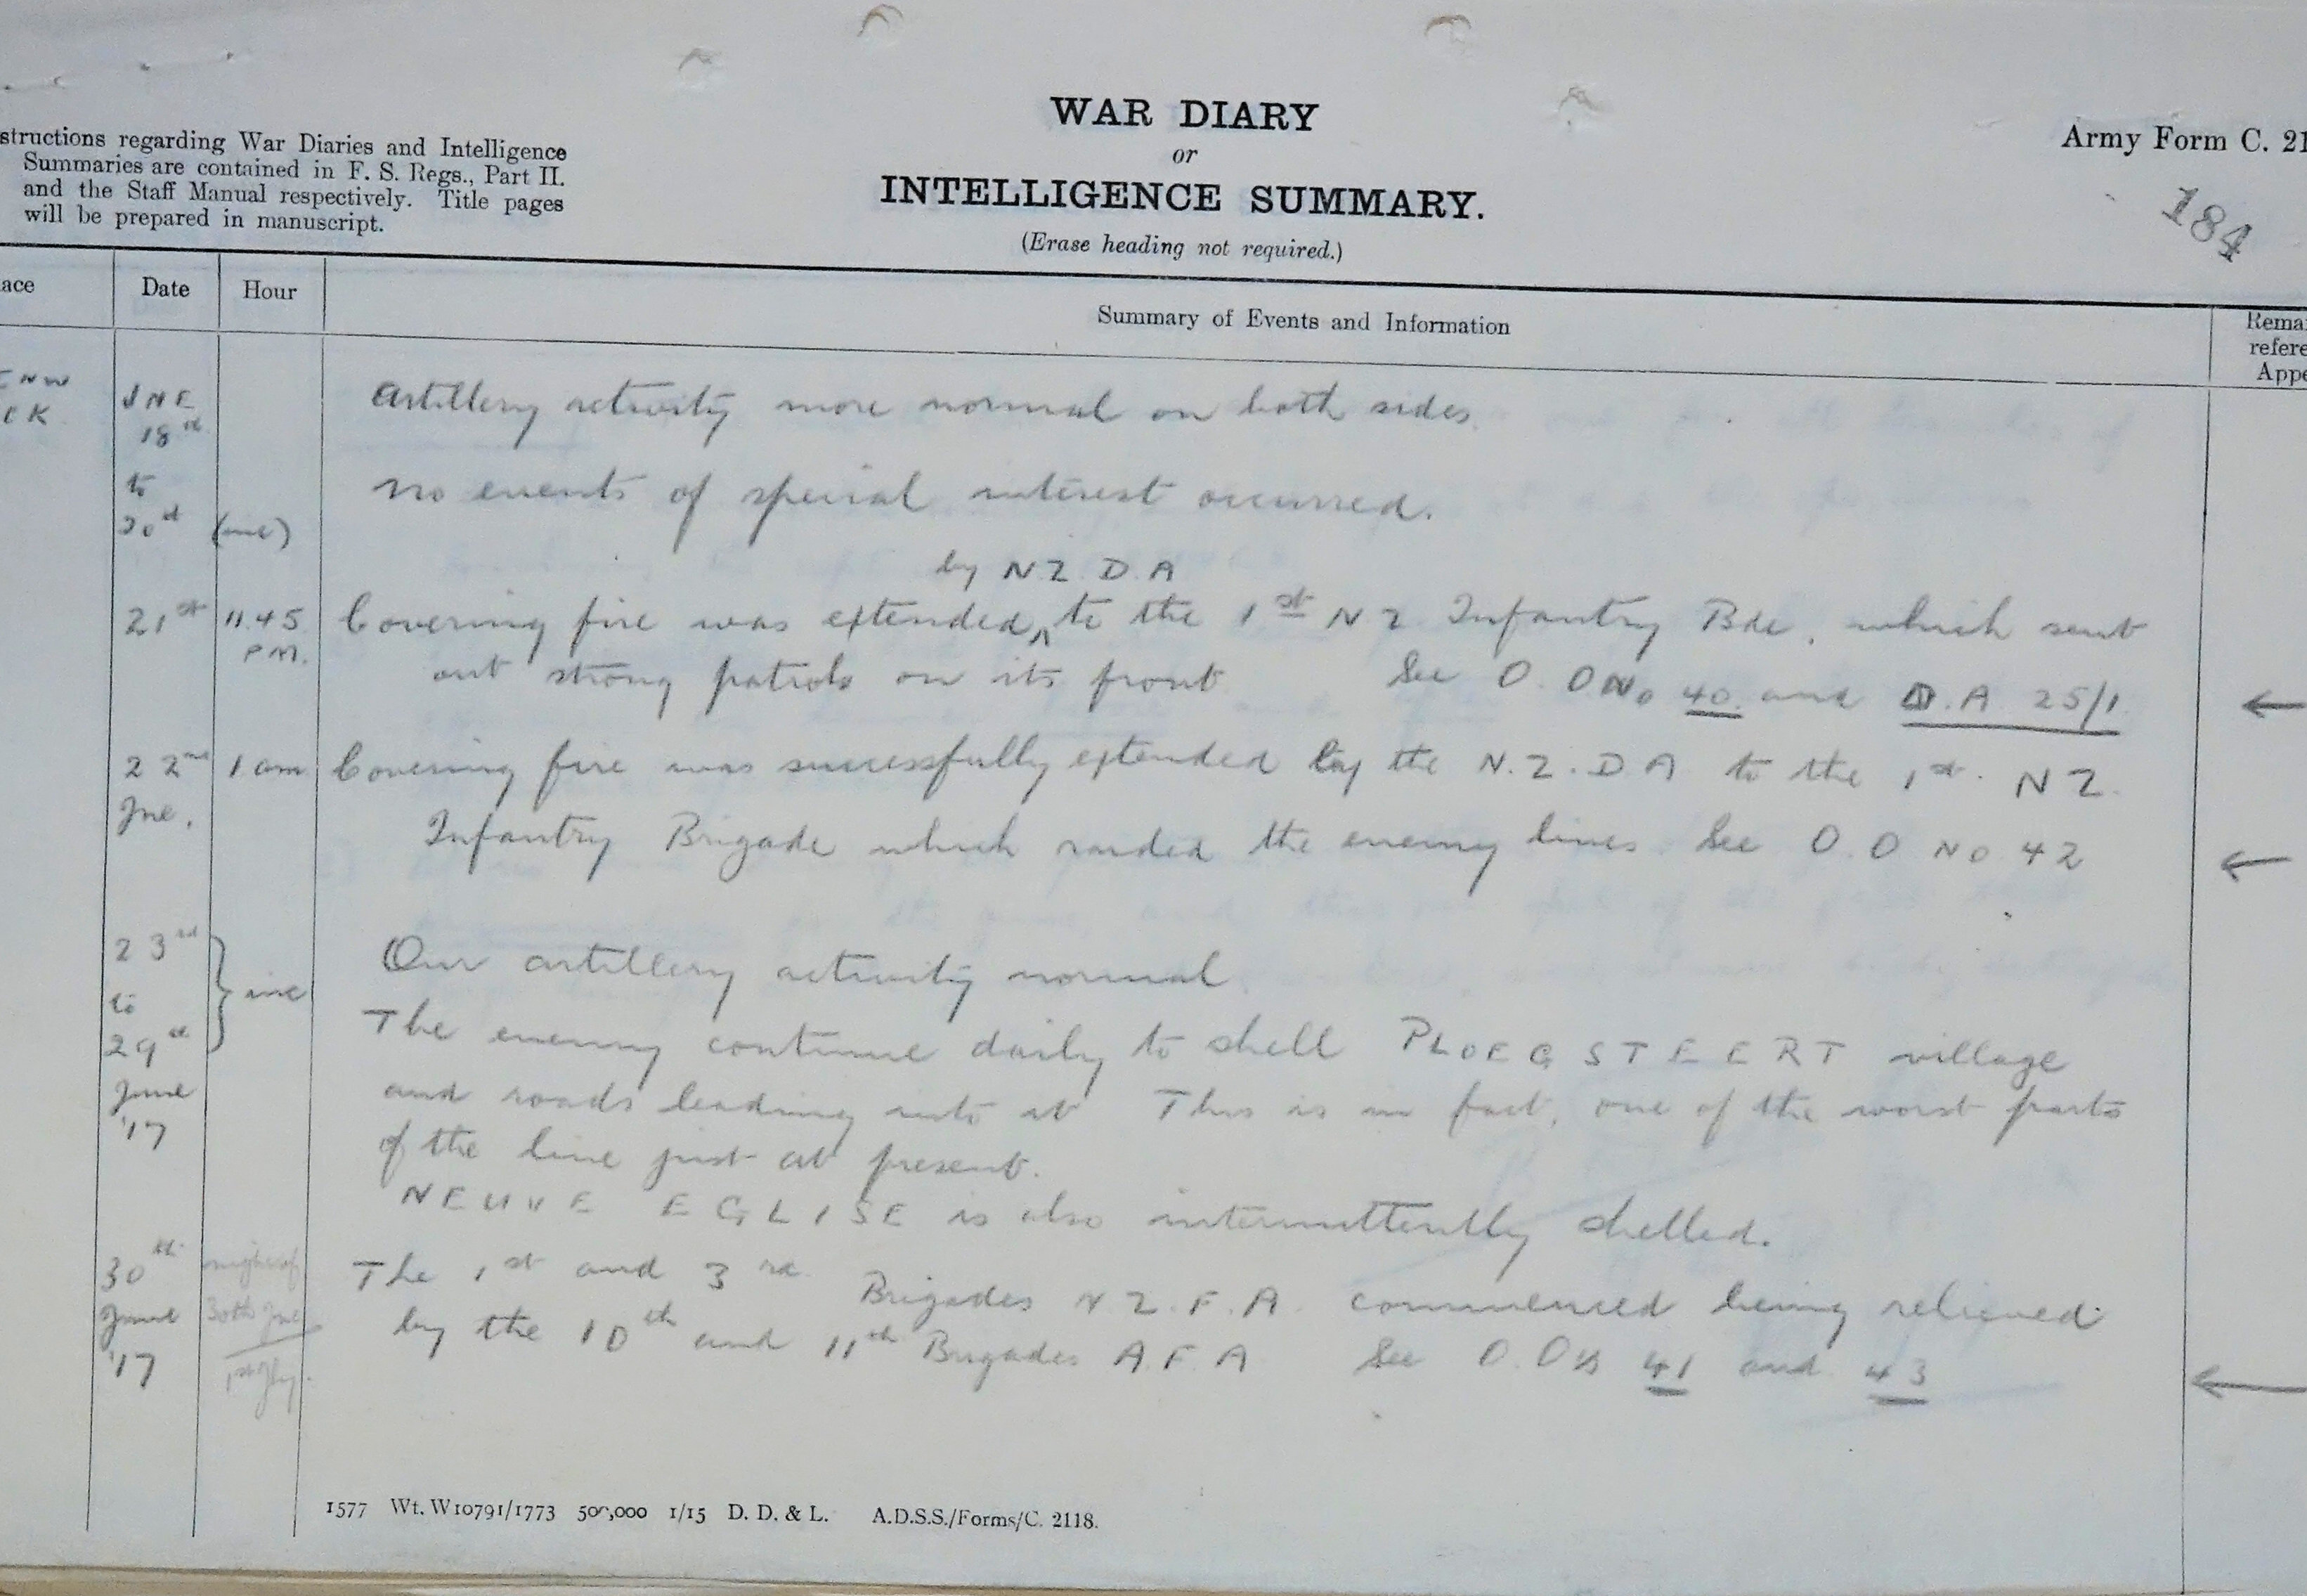 WAR DIARY
or
INTELLIGENCE SUMMARY.
(Erase heading not required.)
structions regarding War Diaries and Intelligence
Summaries are contained in F. S. Regs., Part II.
and the Staff Manual respectively. Title pages
will be prepared in manuscript.
Army Form C. 21
184
ace Date Hour Summary of Events and Information
Remar
refere
Appe
JNE 18th Artillery activity more normal on both sides
to No events of special interest occurred.
20th (inc)
by N Z. D. A
21st 11.45 Covering fire was extended ^ to the 1st N Z Infantry Bde, which sent
P.M. out strong patrols on its front See O. O No 40 and D.A 25/1
22nd 1 am Covering fire was successfully extended by the N.Z.D A to the 1st. N Z.
Jne. Infantry Brigade which raided the enemy lines. See O.O No 42
23rd Our artillery activity normal.
to } inc
29th The enemy continue daily to shell PLOEGSTEERT village
June and roads leading into it This is in fact, one of the worst parts
'17 of the line just at present.
NEUVE EGLISE is also intermittently shelled.
30th night of The 1st and 3rd Brigades N Z. F. A. commenced being relieved
June 30th Jne by the 10th and 11th Brigades A. F. A See O.Os 41 and 43
'17 1st Jly.
1577 Wt. W10791/1773 500,000 1/15 D. D. & L. A.D.S.S./Forms/C. 2118.